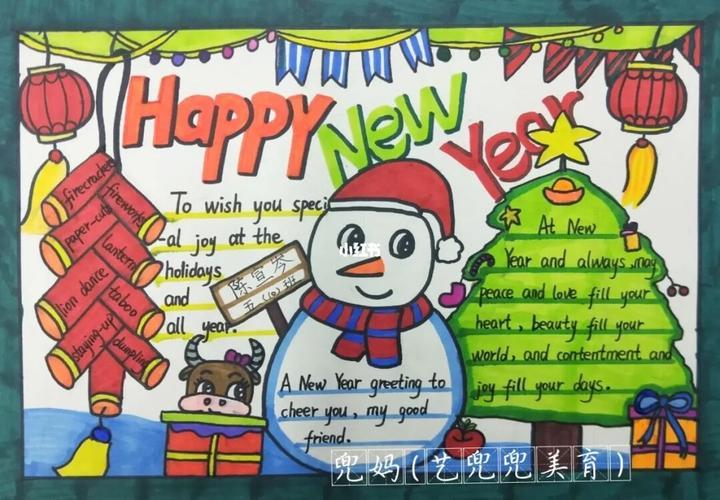 Happy New Year
firecracker
fireworks
paper-cuts
lantern
lion dance
taboo
staying-up
dumpling
To wish you speci
-al joy at the
holidays
and
all year.
陈宣岑
五(10)班
小红书
At New
Year and always, may
peace and love fill your
heart, beauty fill your
world, and contentment and
joy fill your days.
A New Year greeting to
cheer you, my good
friend.
兜妈(艺兜兜美育)